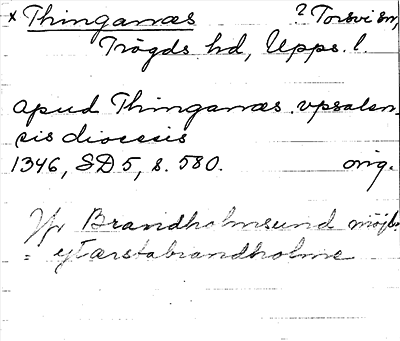 x Thinganæs ? Torsvi sn,
Trögds hd, Upps. l.
apud Thinganæs. vpsalen-
sis diocesis
1346, SD 5, s. 580. orig.
Jfr Brandholmsund möjl.
= ytærstabrandholme